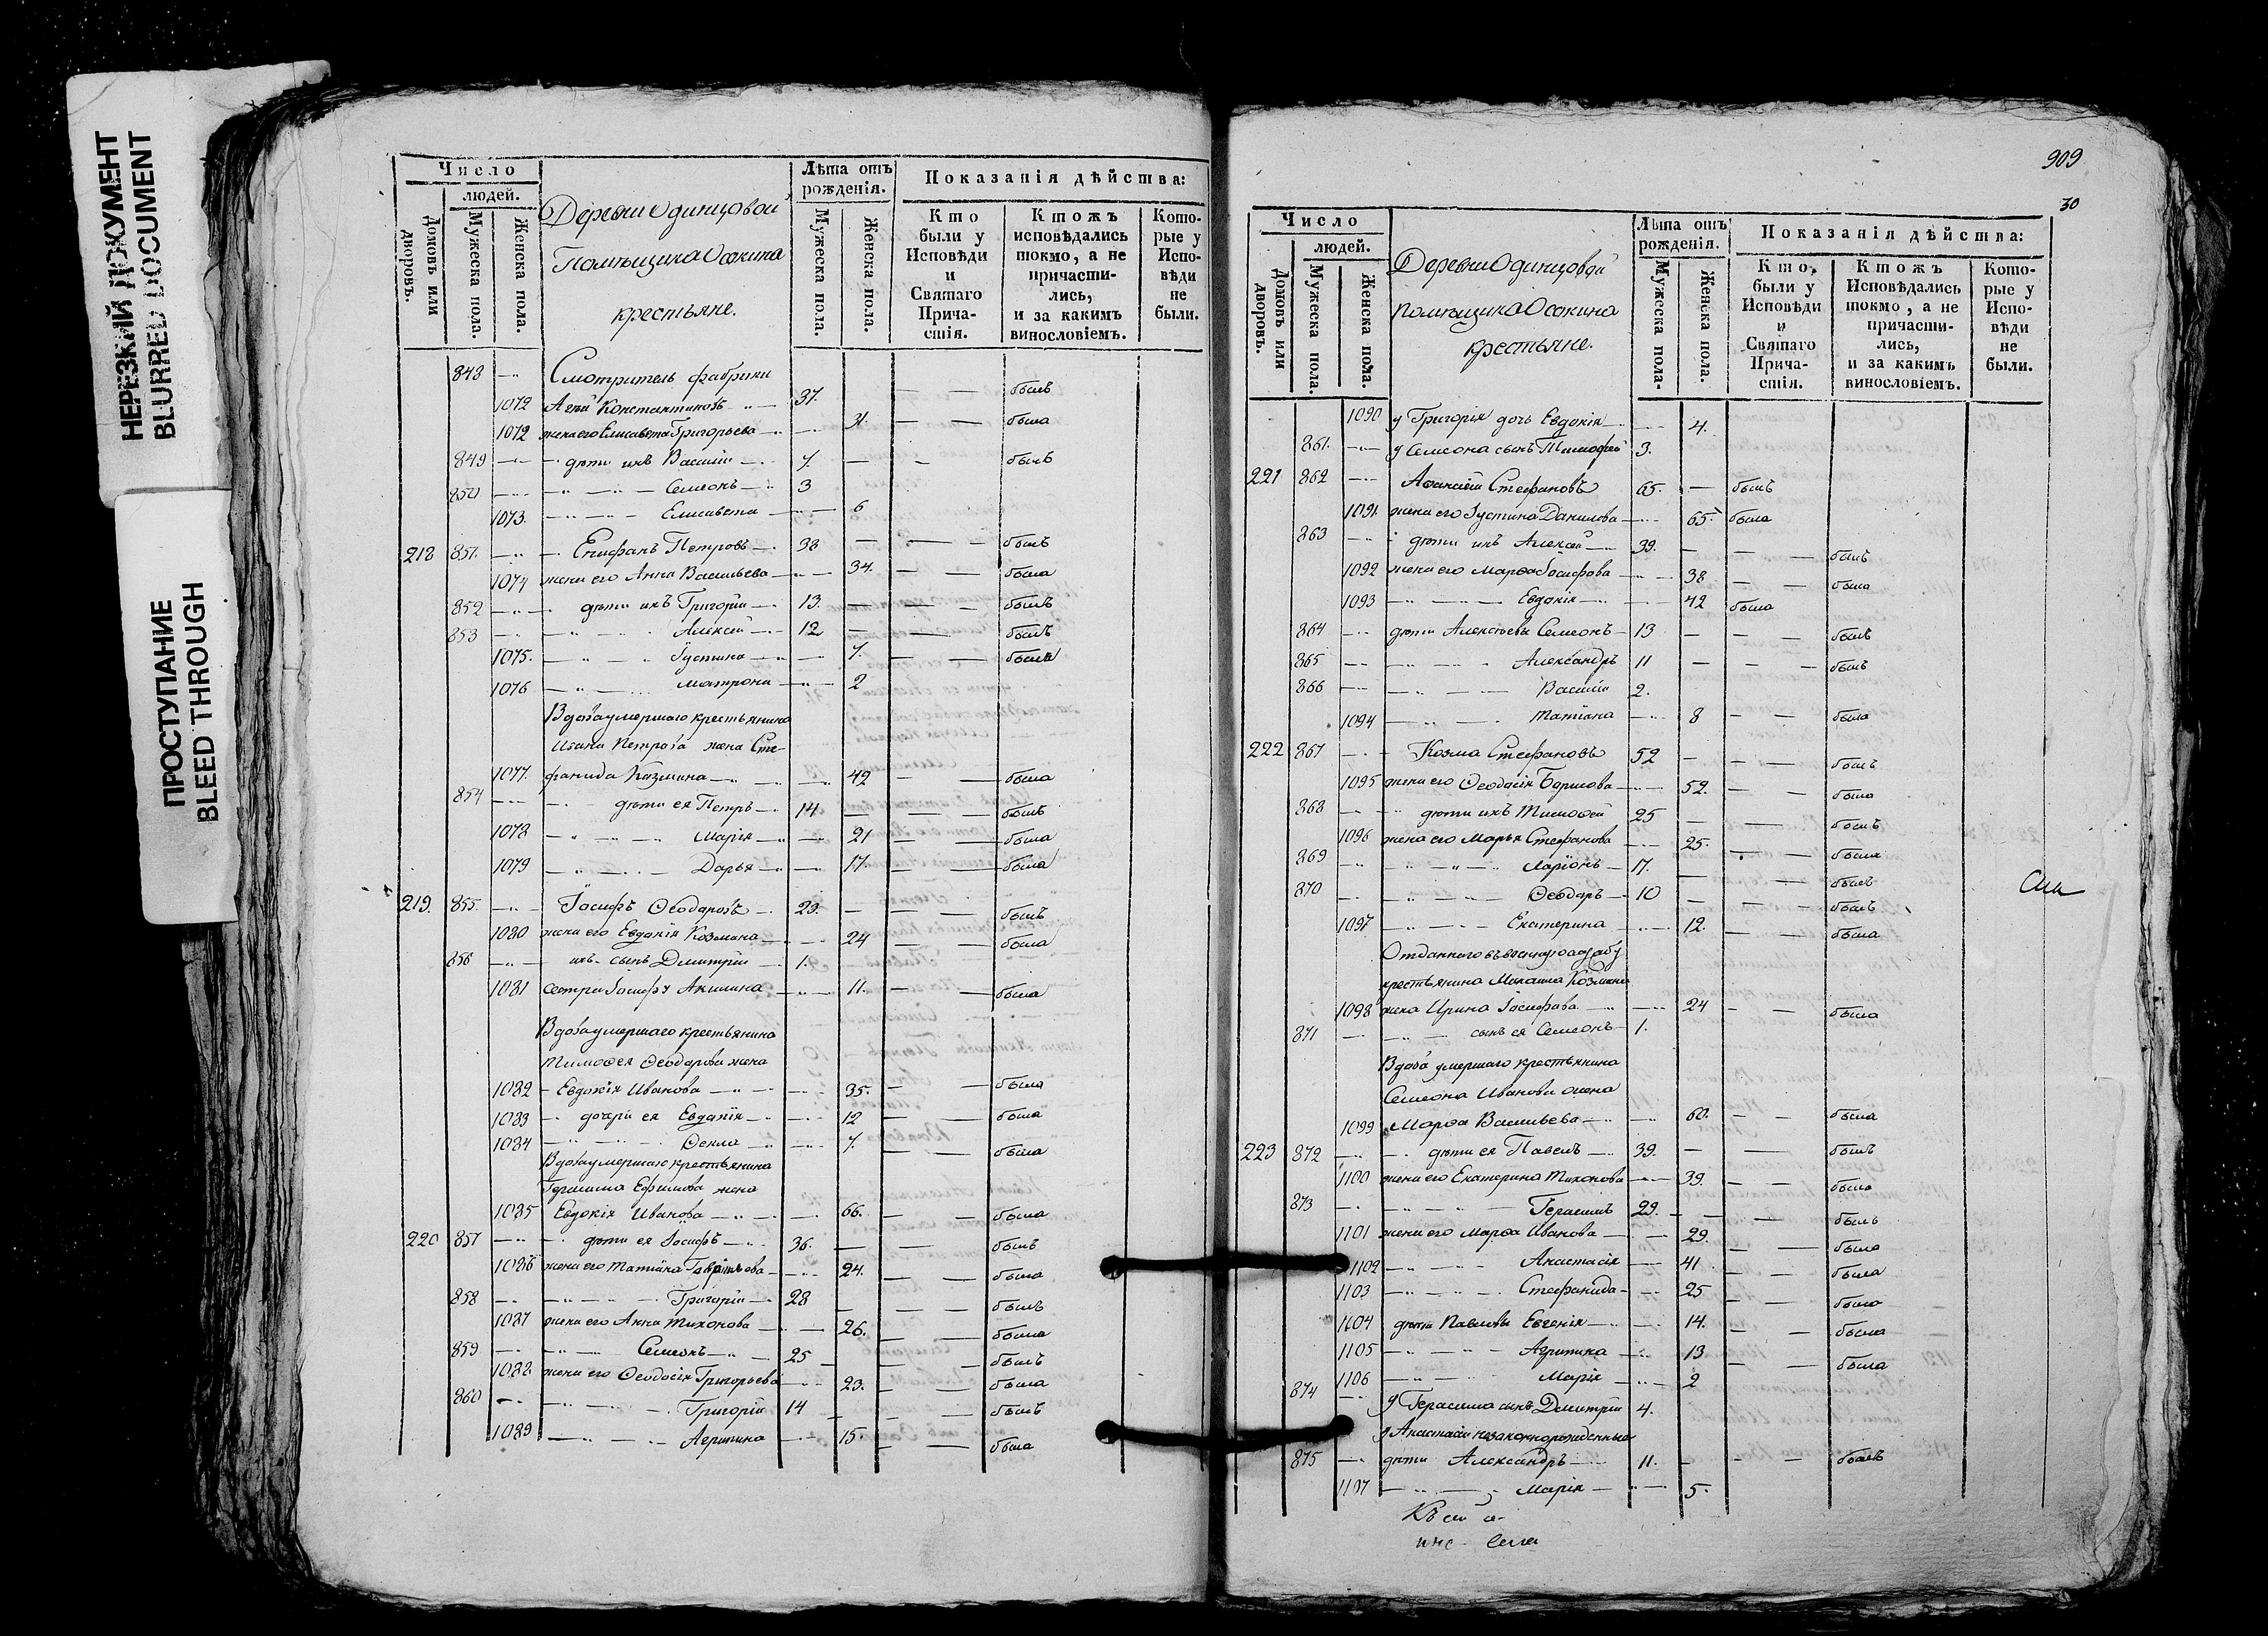 НЕРЕЗКИЙ ДОКУМЕНТ
BLURRED DOCUMENT
ПРОСТУПАНИЕ
BLEED THROUGH
Число
людей.
Домовъ или дворовъ.
Мужеска пола.
Женска пола.
Деревни Одинцовой
Помѣщика Осокина
крестьяне.
Лѣта отъ рожденія.
Мужеска пола.
Женска пола.
Показанія дѣйства:
Кто были у Исповѣди и Святаго Прича-стія.
Ктожъ исповѣдались токмо, а не причасти-лись, и за какимъ винословіемъ.
Кото-рые у Испо-вѣди не были.
848 Смотритель фабрики
Константиновъ 37. былъ
1072 жена его Елисавета Григорьева 31. была
849 дѣти ихъ Василій 7. былъ
850 Семіонъ 3
1073. Елисавета 6
218 851. Епифанъ Петровъ 38 былъ
1074 жена его Анна Васильева 34. была
852 дѣти ихъ Григорій 13. былъ
853 Алексій 12 былъ
1075. Іустина 7. была
1076 Матрона 2
Вдова умершаго крестьянина
Ивана Петрова жена Сте-
1077. фанида Козмина 42 была
854 дѣти ея Петръ 14 былъ
1078 Марія 21 была
1079 Дарья 17. была
219. 855. Іосифъ Ѳеодоровъ 23. былъ
1080 жена его Евдокія Козмина 24 была
856 ихъ сынъ Димитрій 1.
1081 сестра Іосифа Акилина 11. была
Вдова умершаго крестьянина
Тимоѳея Ѳеодорова жена
1082 Евдокія Иванова 35. была
1083 дочери ея Евдокія 12 была
1084 Ѳекла 7. была
Вдова умершаго крестьянина
Герасима Ефимова жена
1085 Евдокія Иванова 66. была
220 857 дѣти ея Іосифъ 36. былъ
1086 жена его Татіана Гаврилова 24. была
858 Григорій 28 былъ
1087 жена его Анна Тихонова 26. была
859 Семіонъ 25 былъ
1088 жена его Ѳеодосія Григорьева 23. была
860 Григорій 14 былъ
1089 Агрипина 15. была
909
30
Число
людей.
Домовъ или дворовъ.
Мужеска пола.
Женска пола.
Деревни Одинцовой
помѣщика Осокина
крестьяне.
Лѣта отъ рожденія.
Мужеска пола.
Женска пола.
Показанія дѣйства:
Кто были у Исповѣди и Святаго Прича-стія.
Ктожъ Исповѣдались токмо, а не причасти-лись, и за какимъ винословіемъ.
Кото-рые у Испо-вѣди не были.
1090 у Григорія дочь Евдокія 4.
861. у Семіона сынъ Тимофей 3.
221 862 Аѳанасій Стефановъ 65. былъ
1091. жена его Іустина Данилова 65. была
863 дѣти ихъ Алексій 39. былъ
1092 жена его Марѳа Іосифова 38 была
1093 Евдокія 42 была
864 дѣти Алексѣевы Семіонъ 13 былъ
865 Александръ 11 былъ
866 Василій 2.
1094 Татіана 8 была
222 867 Козма Стефановъ 52 былъ
1095 жена его Ѳеодосія Борисова 52. была
868 дѣти ихъ Тимоѳей 25 былъ
1096 жена его Марья Стефанова 25. была
869 Ларіонъ 17. былъ
870 Ѳеодоръ 10 былъ
1097 Екатерина 12. была
Отданнаго въ военную службу
крестьянина Михаила Козмина
1098 жена Ирина Іосифова 24 была
871 сынъ ея Семіонъ 1.
Вдова умершаго крестьянина
Семіона Иванова жена
1099 Марѳа Васильева 60. была
223 872 дѣти ея Павелъ 39. былъ
1100 жена его Екатерина Тихонова 39. была
873 Герасимъ 29. былъ
1101 жена его Марѳа Иванова 29. была
1102 Анастасія 41 была
1103 Стефанида 25 была
1104 дѣти Павловы Евгенія 14. была
1105 Агрипина 13 была
1106 Марія 2
874 у Герасима сынъ Димитрій 4.
у Анастасіи незаконнорожденные
875 дѣти Александръ 11. былъ
1107 Марія 5.